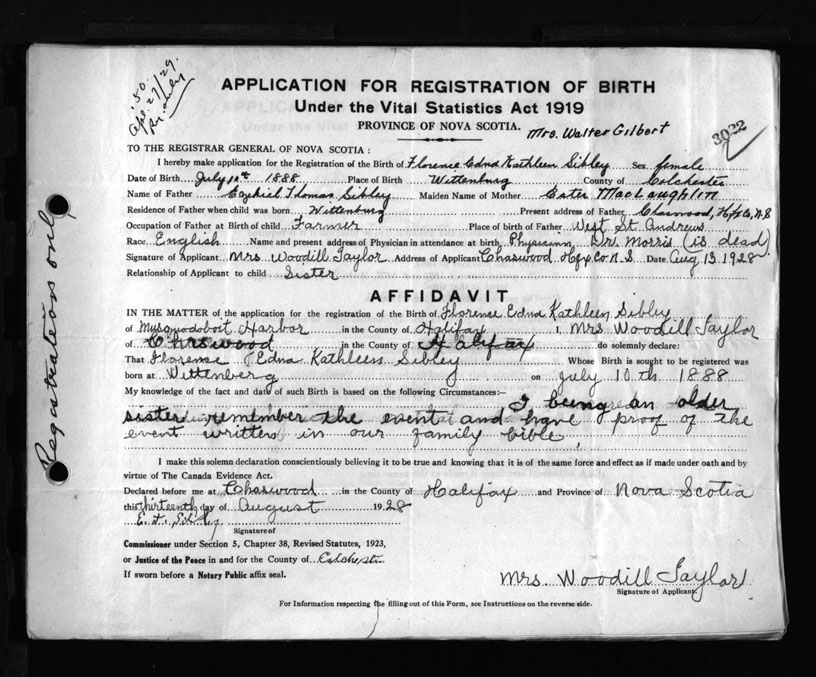 '50.
Apl. 27/29.
APPLICATION FOR REGISTRATION OF BIRTH
Under the Vital Statistics Act 1919
PROVINCE OF NOVA SCOTIA.
Mrs. Walter Gilbert
3022
TO THE REGISTRAR GENERAL OF NOVA SCOTIA :
I hereby make application for the Registration of the Birth of Florence Edna Kathleen Sibley Sex female
Date of Birth July 10th 1888 Place of Birth Wittenburg County of Colchester
Name of Father Ezekiel Thomas Sibley Maiden Name of Mother Ester MacLaughlin
Residence of Father when child was born Wittenburg Present address of Father Chaswood, Hfx Co, N.S
Occupation of Father at Birth of child Farmer Place of birth of Father West St. Andrews
Race English Name and present address of Physician in attendance at birth Physician, Dr. Morris (is dead)
Signature of Applicant Mrs Woodill Taylor Address of Applicant Chaswood Hfx Co N.S Date Aug 13 1928
Relationship of Applicant to child Sister
Registration only
AFFIDAVIT
IN THE MATTER of the application for the registration of the Birth of Florence Edna Kathleen Sibley
of Musquodoboit Harbor in the County of Halifax I, Mrs Woodill Taylor
of Chaswood in the County of Halifax do solemnly declare:
That Florence Edna Kathleen Sibley Whose Birth is sought to be registered was
born at Wittenberg on July 10th 1888
My knowledge of the fact and date of such Birth is based on the following Circumstances:—
I being an older
sister remember the event and have proof of the
event written in our family bible.
I make this solemn declaration conscientiously believing it to be true and knowing that it is of the same force and effect as if made under oath and by
virtue of The Canada Evidence Act.
Declared before me at Chaswood in the County of Halifax and Province of Nova Scotia
this thirteenth day of August 1928
E. T. Sibley
Signature of
Commissioner under Section 5, Chapter 38, Revised Statutes, 1923,
or Justice of the Peace in and for the County of Colchester
If sworn before a Notary Public affix seal.
Mrs. Woodill Taylor
Signature of Applicant
For Information respecting the filling out of this Form, see Instructions on the reverse side.